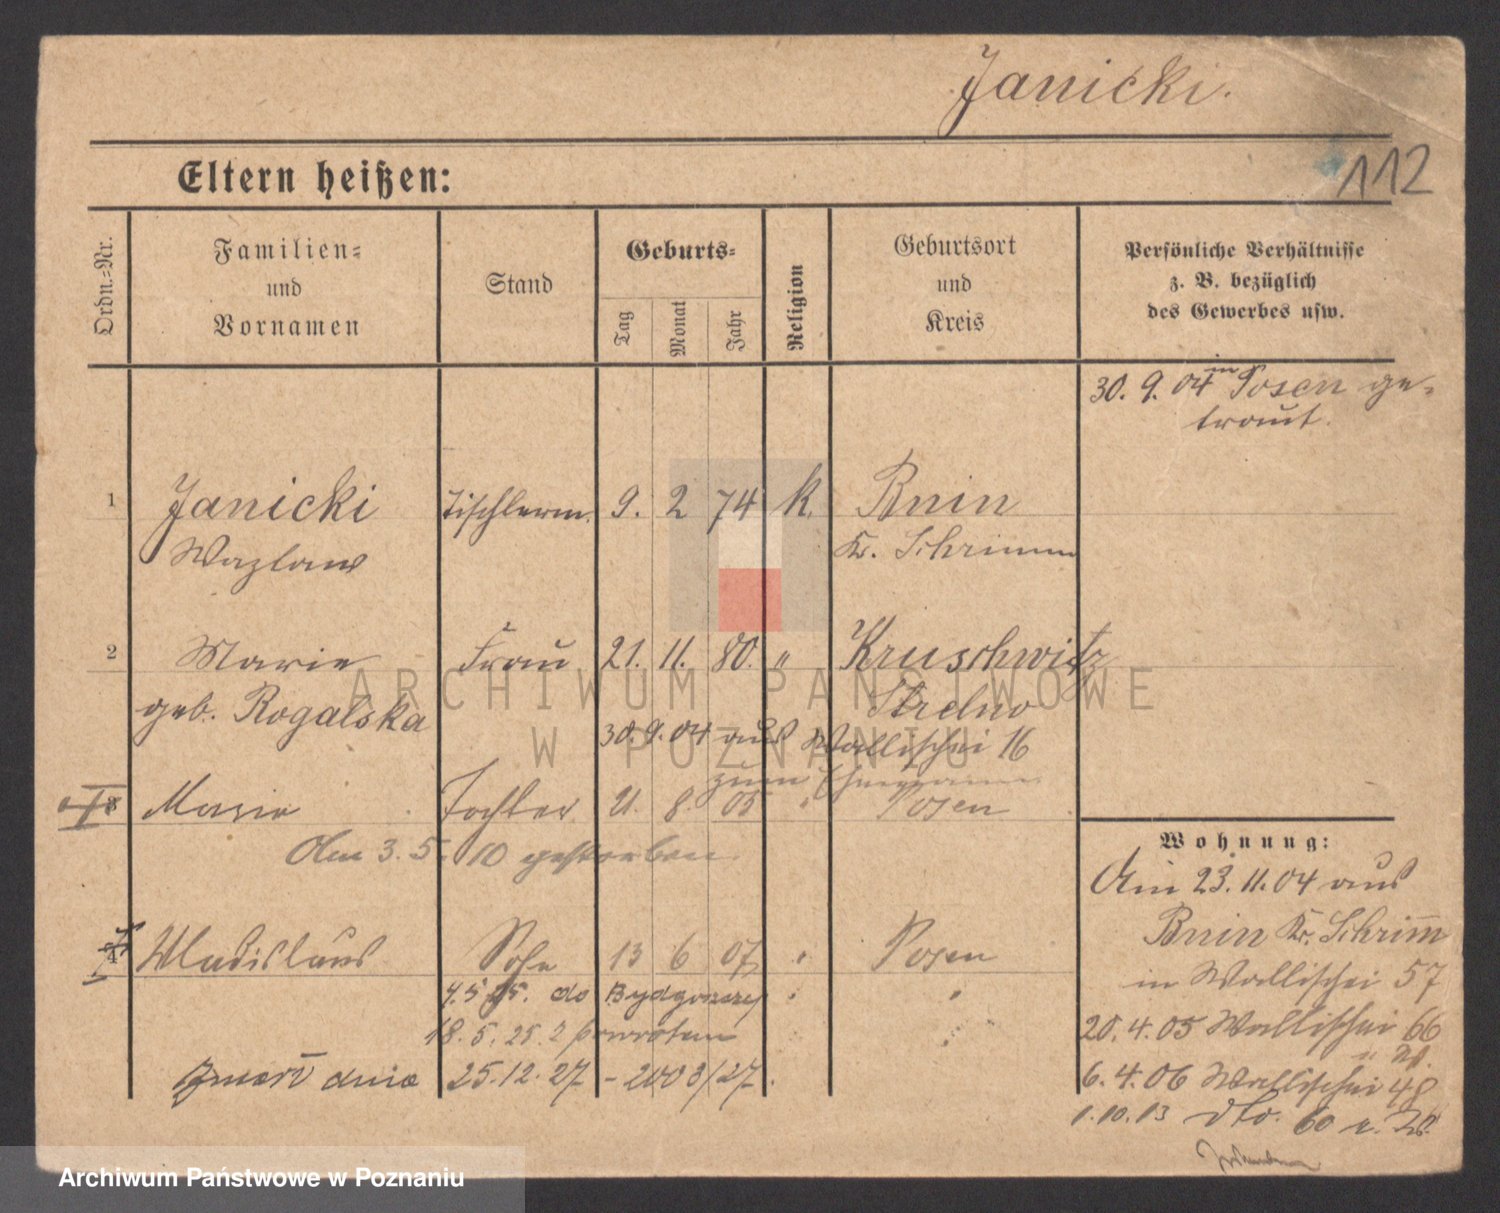 Janicki.
112
Eltern heißen:
Ordn.=Nr.
Familien=
und
Vornamen
Stand
Geburts=
Tag
Monat
Jahr
Religion
Geburtsort
und
Kreis
Persönliche Verhältnisse
z. B. bezüglich
des Gewerbes usw.
30. 9. 04 in Posen ge=
traut.
1 Janicki Tischlerm. 9. 2 74 k. Bnin
Wazlaw Kr. Schrimm
2 Marie Frau 21. 11. 80. " Kruschwitz
geb. Rogalska Strelno
30. 9. 04 aus Wallischei 16
zum Ehemann
3 Marie Tochter 21. 8. 05 " Posen
Am 3. 5. 10 gestorben.
Wohnung:
Am 23. 11. 04 aus
Bnin Kr. Schrimm
in Wallischei 57
4 Wladislaus Sohn 13 6 07 " Posen
4.5 25. do Bydgoszczy "
18. 5. 25. z powrotem
20. 4. 05 Wallischei 66
Zmarł dnia 25. 12. 27 - 2003/27.
6. 4. 06 Wallischei 48
1. 10. 13 dto. 60
ARCHIWUM PAŃSTWOWE
W POZNANIU
Archiwum Państwowe w Poznaniu